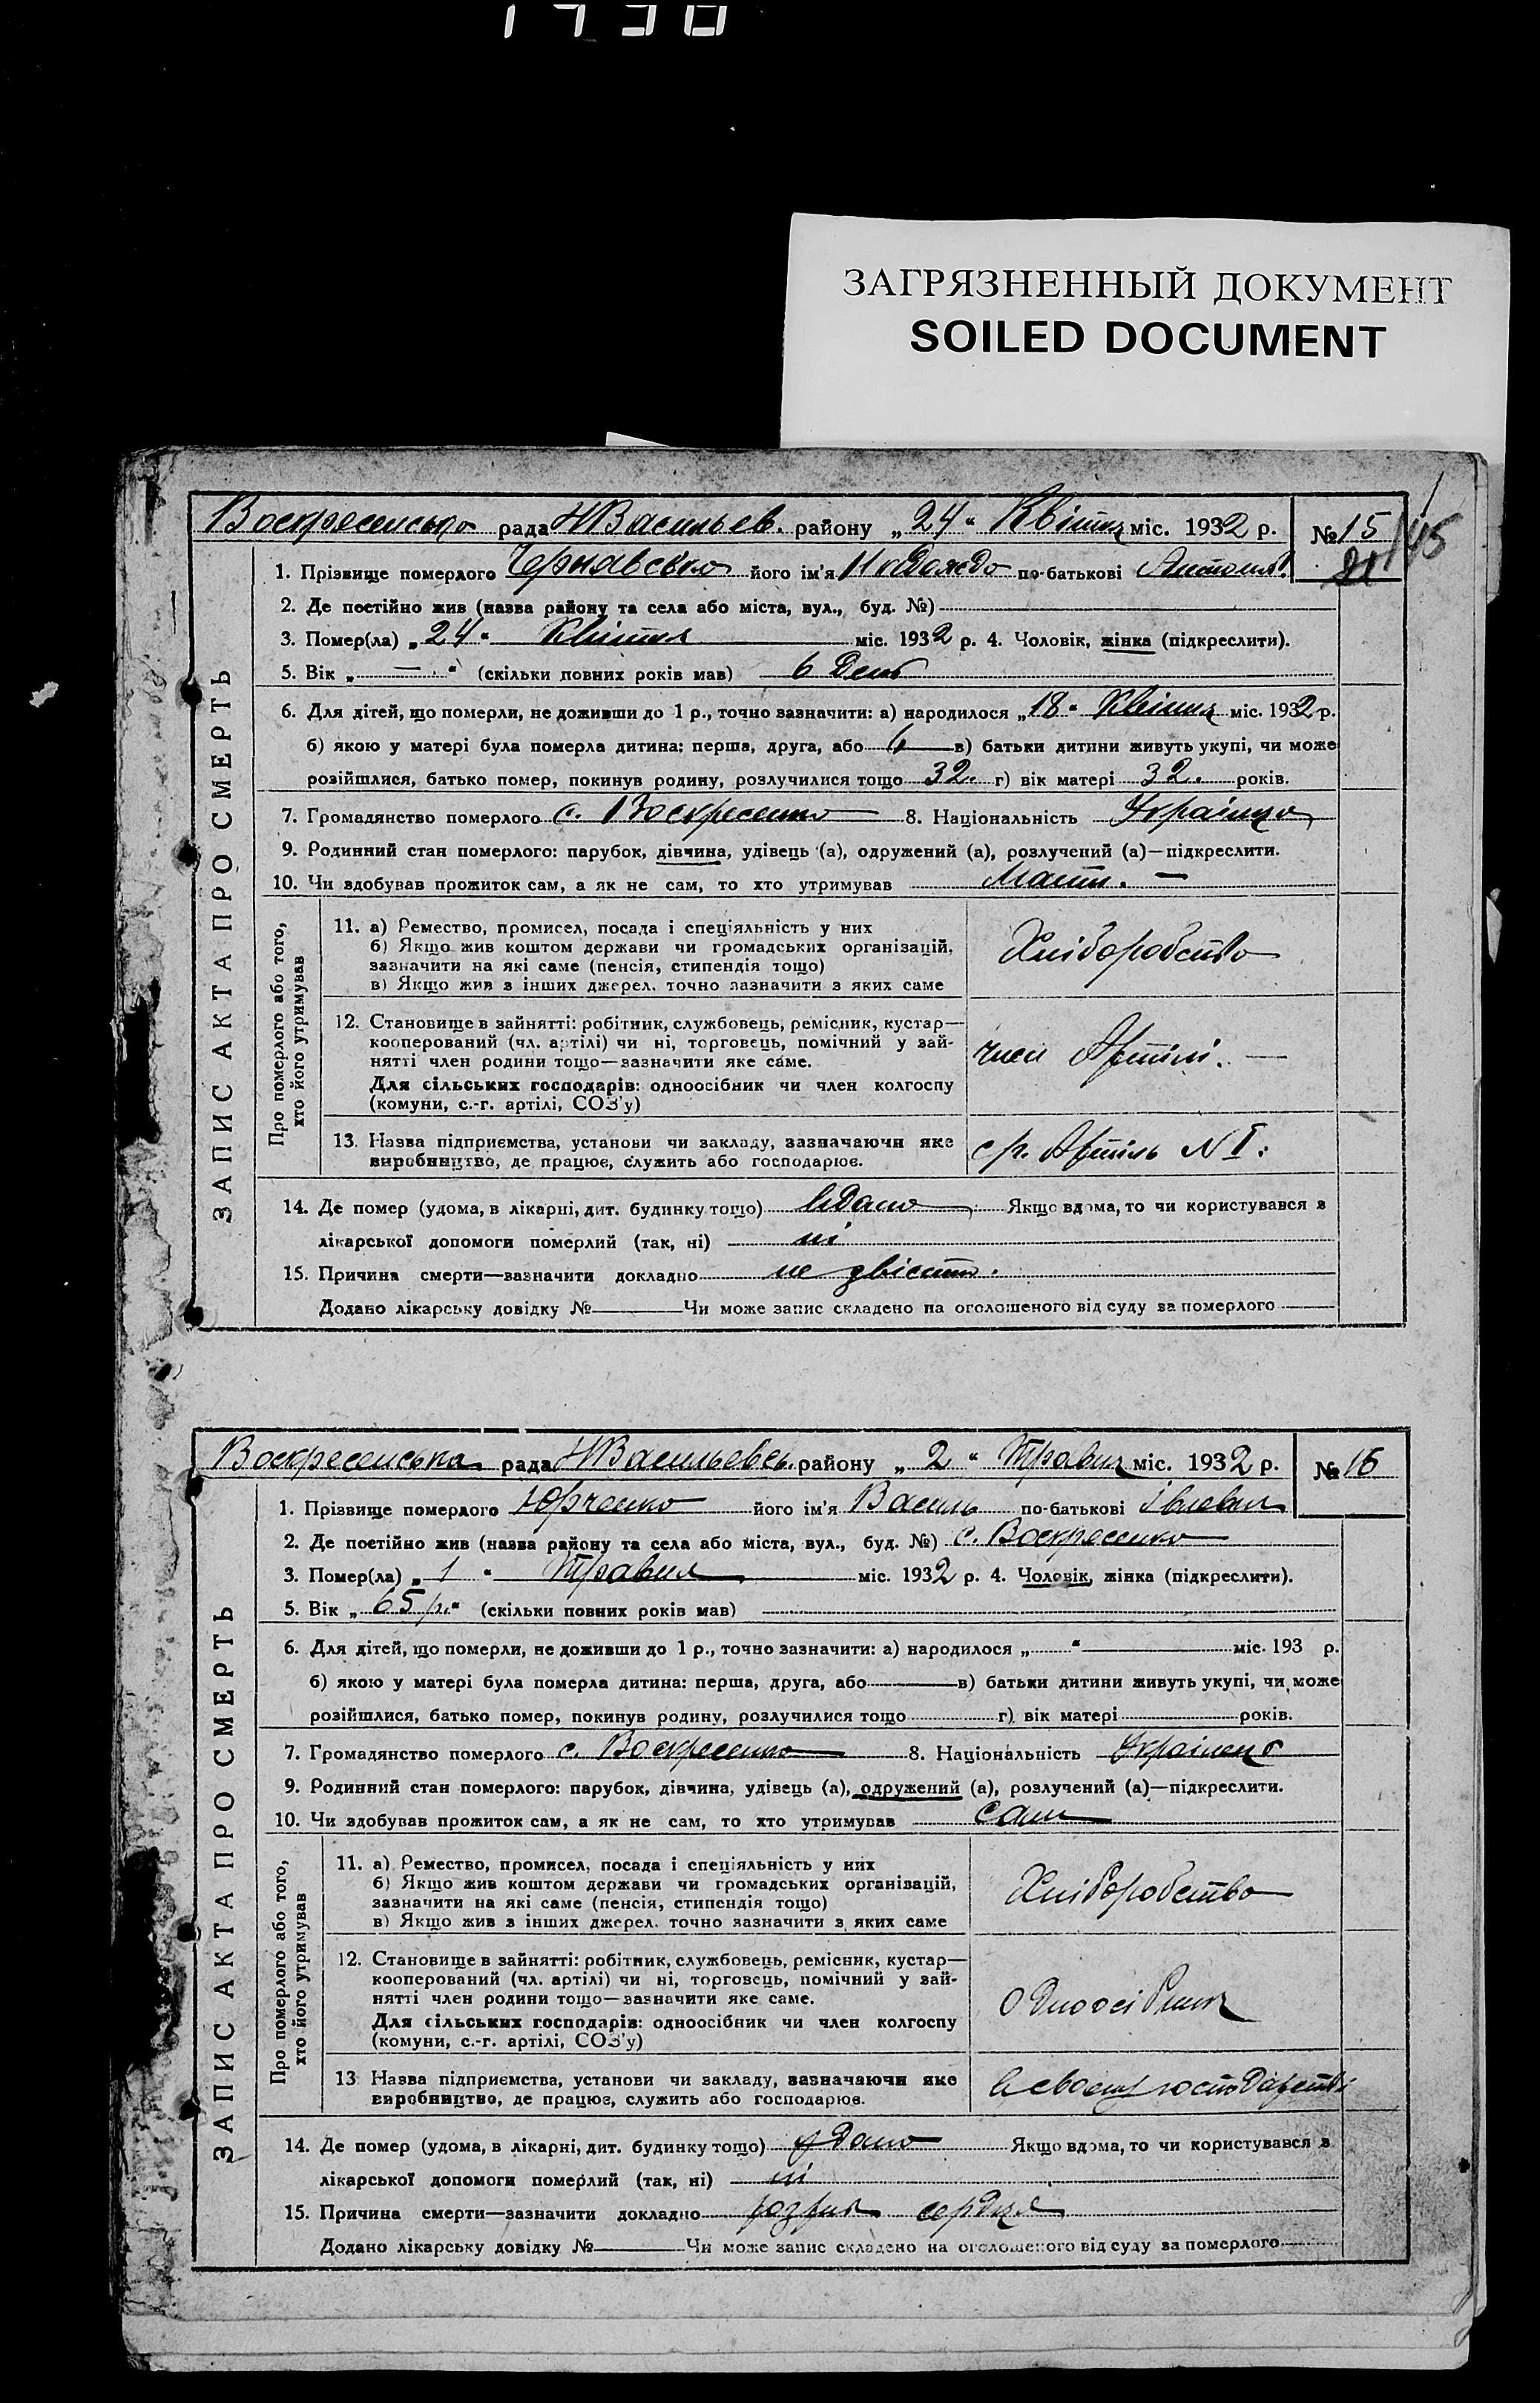 1938
ЗАГРЯЗНЕННЫЙ ДОКУМЕНТ
SOILED DOCUMENT
Воскресенська рада НВасильев. району „24“ Квітня міс. 1932 р. № 15
1. Прізвище померлого Чернавська його ім'я Надежда по-батькові
2. Де постійно жив (назва району та села або міста, вул., буд. №)
3. Помер(ла) „24“ Квітня міс. 1932 р. 4. Чоловік, жінка (підкреслити).
5. Вік „—“ (скільки повних років мав) 6 день
6. Для дітей, що померли, не доживши до 1 р., точно зазначити: а) народилося „18“ Квітня міс. 1932 р.
б) якою у матері була померла дитина: перша, друга, або 6 в) батьки дитини живуть укупі, чи може
розійшлися, батько помер, покинув родину, розлучилися тощо 32. г) вік матері 32. років.
7. Громадянство померлого с. Воскресенка 8. Національність Українка
9. Родинний стан померлого: парубок, дівчина, удівець (а), одружений (а), розлучений (а)—підкреслити.
10. Чи здобував прожиток сам, а як не сам, то хто утримував Мати. —
ЗАПИС АКТА ПРО СМЕРТЬ
Про померлого або того, хто його утримував
11. а) Ремество, промисел, посада і спеціяльність у них
б) Якщо жив коштом держави чи громадських організацій,
зазначити на які саме (пенсія, стипендія тощо)
в) Якщо жив з інших джерел, точно зазначити з яких саме
Хліборобство
12. Становище в зайнятті: робітник, службовець, ремісник, кустар—
кооперований (чл. артілі) чи ні, торговець, помічний у зай-
нятті член родини тощо—зазначити яке саме.
Для сільських господарів: одноосібник чи член колгоспу
(комуни, с.-г. артілі, СОЗ'у)
член Артілі. —
13. Назва підприємства, установи чи закладу, зазначаючи яке
виробництво, де працює, служить або господарює.
Артіль N I.
14. Де помер (удома, в лікарні, дит. будинку тощо) вдома Якщо вдома, то чи користувався з
лікарської допомоги померлий (так, ні) ні
15. Причина смерти—зазначити докладно не звісна.
Додано лікарську довідку № Чи може запис складено на оголошеного від суду за померлого
Воскресенська рада НВасильевсь. району „2“ Травня міс. 1932 р. № 16
1. Прізвище померлого Юрченко його ім'я Василь по-батькові
2. Де постійно жив (назва району та села або міста, вул., буд. №) с. Воскресенка
3. Помер(ла) „1“ Травня міс. 1932 р. 4. Чоловік, жінка (підкреслити).
5. Вік „65 р.“ (скільки повних років мав)
6. Для дітей, що померли, не доживши до 1 р., точно зазначити: а) народилося „ “ міс. 193 р.
б) якою у матері була померла дитина: перша, друга, або в) батьки дитини живуть укупі, чи може
розійшлися, батько помер, покинув родину, розлучилися тощо г) вік матері років.
7. Громадянство померлого с. Воскресенка 8. Національність Українець
9. Родинний стан померлого: парубок, дівчина, удівець (а), одружений (а), розлучений (а)—підкреслити.
10. Чи здобував прожиток сам, а як не сам, то хто утримував сам
ЗАПИС АКТА ПРО СМЕРТЬ
Про померлого або того, хто його утримував
11. а) Ремество, промисел, посада і спеціяльність у них
б) Якщо жив коштом держави чи громадських організацій,
зазначити на які саме (пенсія, стипендія тощо)
в) Якщо жив з інших джерел, точно зазначити з яких саме
Хліборобство
12. Становище в зайнятті: робітник, службовець, ремісник, кустар—
кооперований (чл. артілі) чи ні, торговець, помічний у зай-
нятті член родини тощо—зазначити яке саме.
Для сільських господарів: одноосібник чи член колгоспу
(комуни, с.-г. артілі, СОЗ'у)
13 Назва підприємства, установи чи закладу, зазначаючи яке
виробництво, де працює, служить або господарює.
в своему господарстві
14. Де помер (удома, в лікарні, дит. будинку тощо) удома Якщо вдома, то чи користувався з
лікарської допомоги померлий (так, ні) ні
15. Причина смерти—зазначити докладно розрив сердця
Додано лікарську довідку № Чи може запис складено на оголошеного від суду за померлого